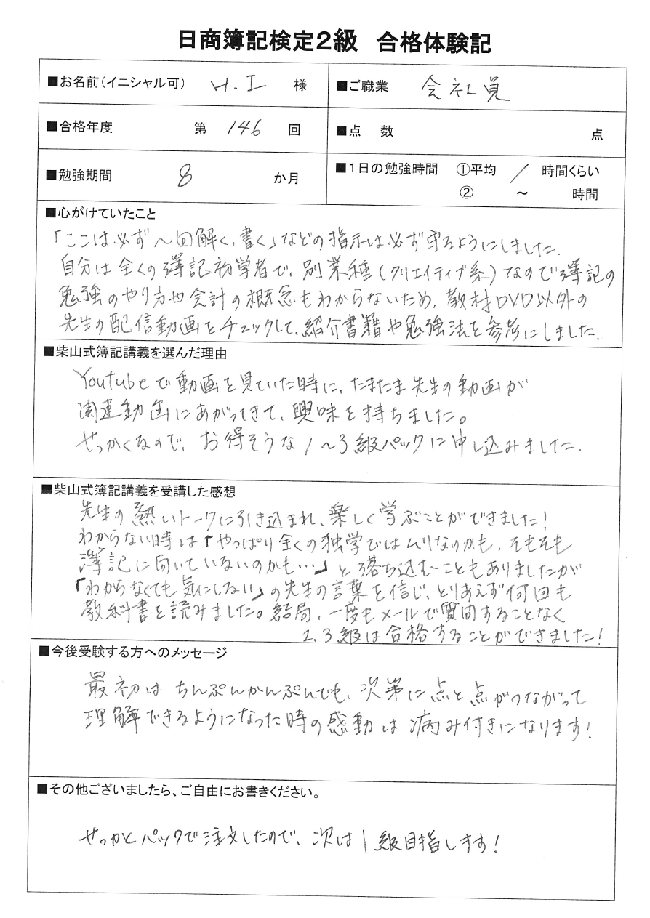 日商簿記検定2級 合格体験記
■お名前（イニシャル可） H.I 様 ■ご職業 会社員
■合格年度 第 146 回 ■点 数 点
■勉強期間 8 か月 ■1日の勉強時間 ①平均 / 時間くらい
② ～ 時間
■心がけていたこと
「ここは必ず〜回解く、書く」などの指示は必ず守るようにしました。
自分は全くの簿記初学者で、別業種(クリエイティブ系)なので簿記の
勉強のやり方や会計の概念もわからないため、教材DVD以外の
先生の配信動画をチェックして、紹介書籍や勉強法を参考にしました。
■柴山式簿記講義を選んだ理由
Youtubeで動画を見ていた時に、たまたま先生の動画が
関連動画にあがってきて、興味を持ちました。
せっかくなので、お得そうな1〜3級パックに申し込みました。
■柴山式簿記講義を受講した感想
先生の熱いトークに引き込まれ、楽しく学ぶことができました!
わからない時は「やっぱり全くの独学ではムリなのかも、そもそも
簿記に向いていないのかも…」と落ち込むこともありましたが
「わからなくても気にしない」の先生の言葉を信じ、とりあえず何回も
教科書を読みました。結局、一度もメールで質問することなく
2、3級は合格することができました!
■今後受験する方へのメッセージ
最初はちんぷんかんぷんでも、次第に点と点がつながって
理解できるようになった時の感動は病み付きになります!
■その他ございましたら、ご自由にお書きください。
せっかくパックで注文したので、次は1級目指します!